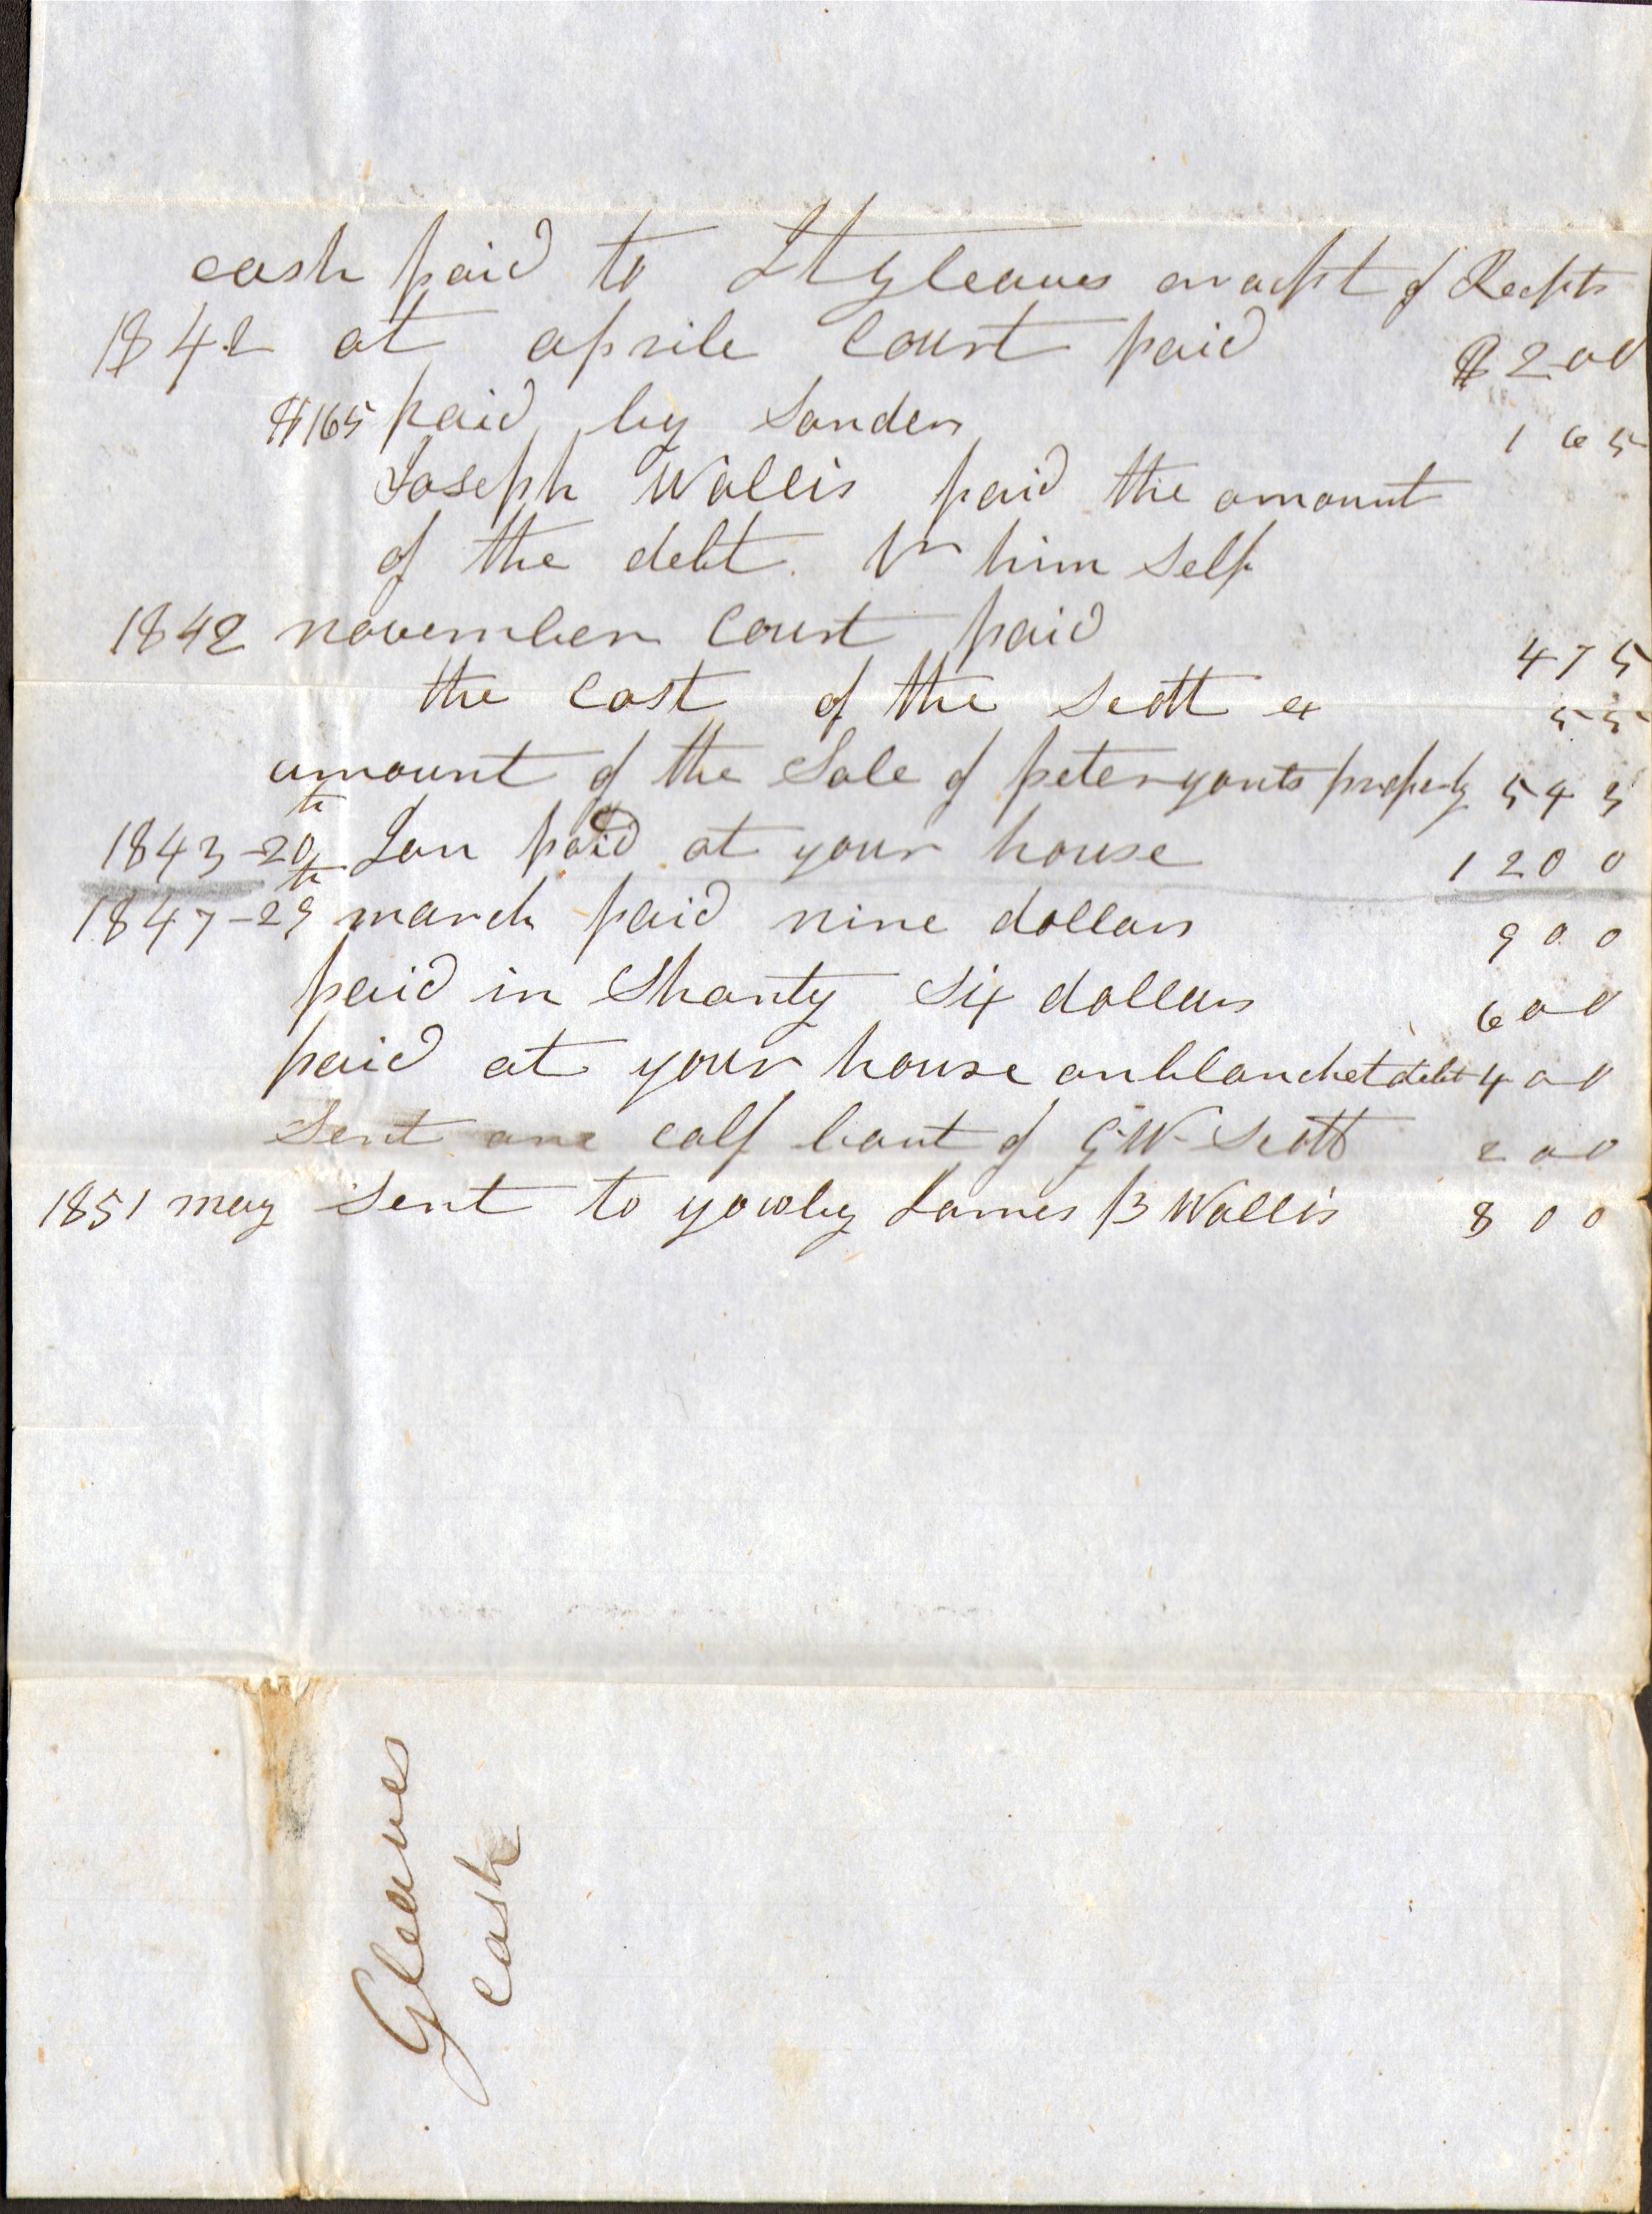 cash paid to Gleaves on acpt of Recpts
1842 at aprile Court paid $200
$165 paid by Sanders 165
Joseph Wallis paid the amount
of the debt. him Self
1842 november Court paid 475
the Cost of the Scott ex 55
amount of the Sale of peter yonts property 543
1843-20th Jan paid at your house 1200
1847-29th march paid nine dollars 900
paid in Shanty Six dollars 600
paid at your house on blanchet debt 400
Sent one calf baut of G W Scott 200
1851 may Sent to you by James B Wallis 800
Gleaves
Cash